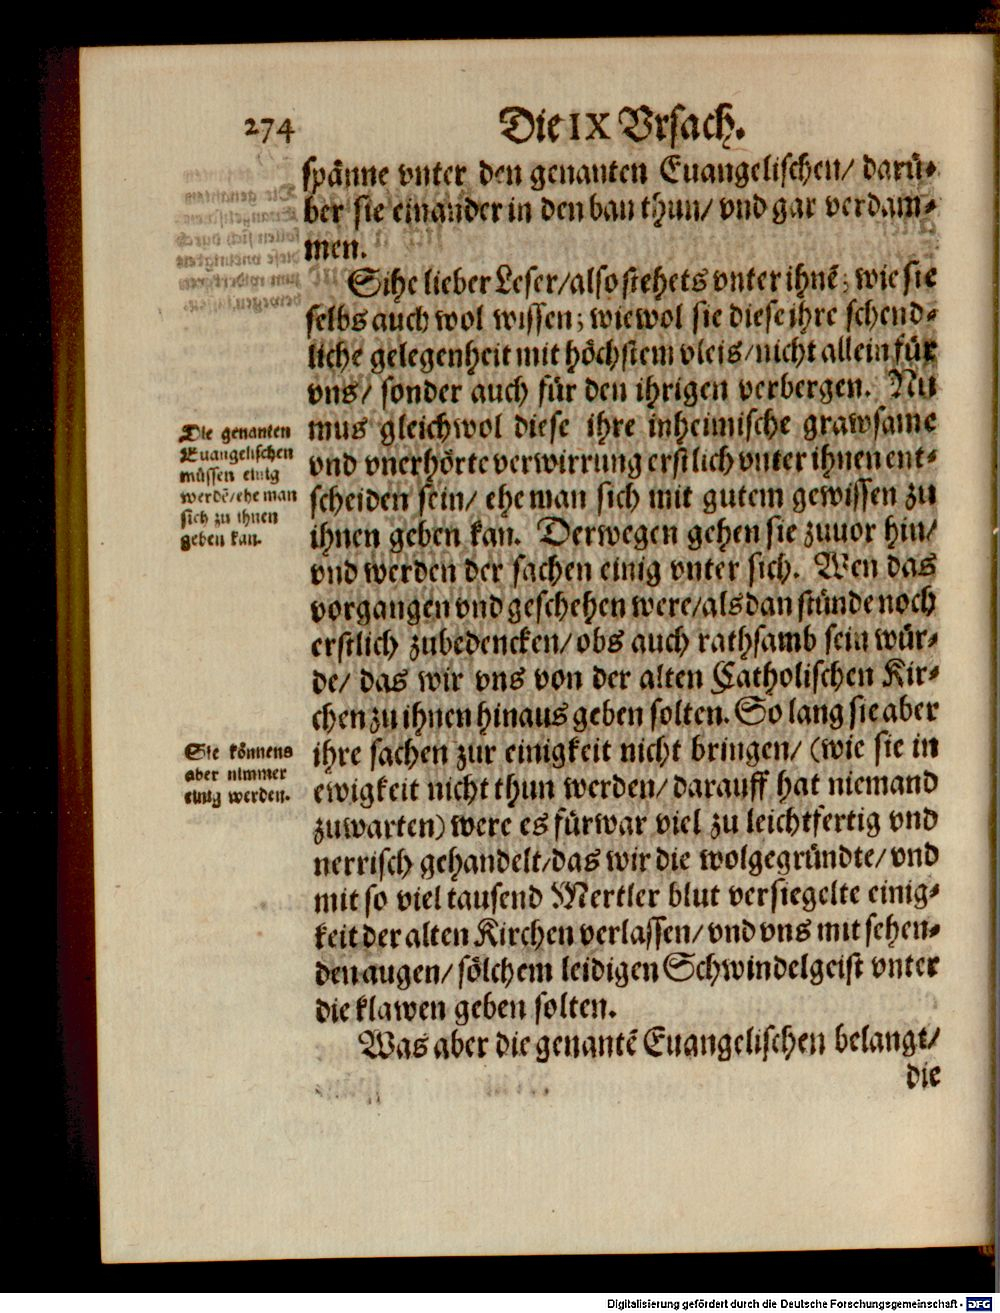 274
Die IX Vrsach.
spänne vnter den genanten Euangelischen/ darü-
ber sie einander in den ban thun/ vnd gar verdam-
men.
Sihe lieber Leser/also stehets vnter ihnē; wie sie
selbs auch wol wissen; wiewol sie diese ihre schend-
liche gelegenheit mit höchstem vleis/nicht allein für
vns/ sonder auch für den ihrigen verbergen. Nu
mus gleichwol diese ihre inheimische grawsame
vnd vnerhörte verwirrung erstlich vnter ihnen ent-
scheiden sein/ ehe man sich mit gutem gewissen zu
ihnen geben kan. Derwegen gehen sie zuuor hin/
vnd werden der sachen einig vnter sich. Wen das
vorgangen vnd geschehen were/als dan stünde noch
erstlich zubedencken/obs auch rathsamb sein wür-
de/ das wir vns von der alten Catholischen Kir-
chen zu ihnen hinaus geben solten. So lang sie aber
ihre sachen zur einigkeit nicht bringen/ (wie sie in
ewigkeit nicht thun werden/ darauff hat niemand
zuwarten) were es fürwar viel zu leichtfertig vnd
nerrisch gehandelt/das wir die wolgegründte/vnd
mit so viel tausend Mertler blut versiegelte einig-
keit der alten Kirchen verlassen/vnd vns mit sehen-
den augen/ sölchem leidigen Schwindelgeist vnter
die klawen geben solten.
Was aber die genantē Euangelischen belangt/
die
Die genanten
Euangelischen
müssen einig
werdē/ehe man
sich zu ihnen
geben kan.
Sie können
aber nimmer
einig werden.
Digitalisierung gefördert durch die Deutsche Forschungsgemeinschaft - DFG